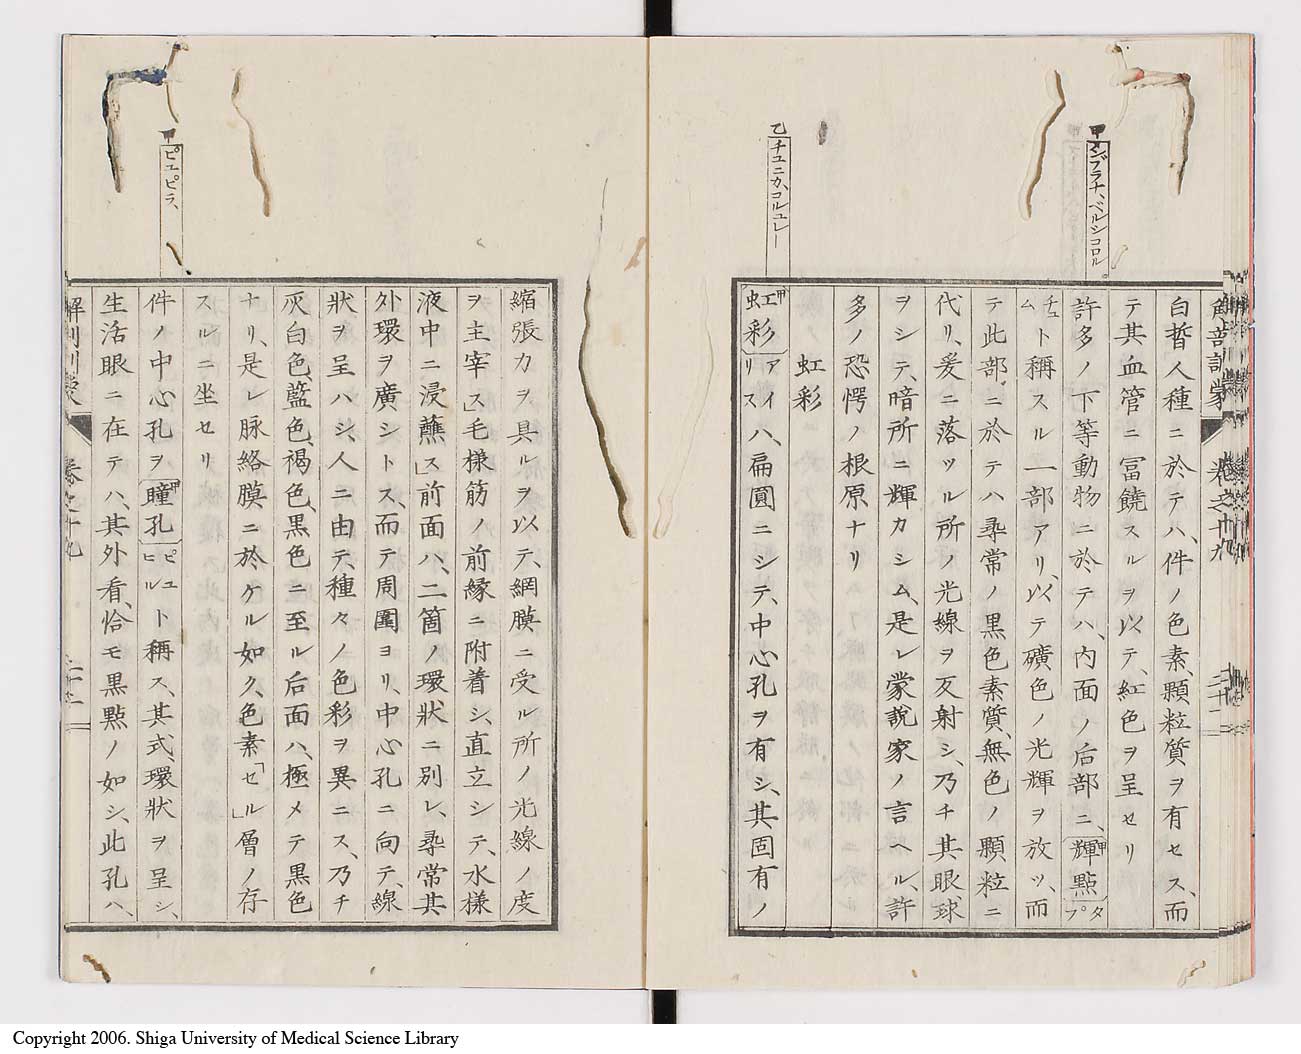 甲 シブラナ、ベルシコロル。
乙 チユニカ、コルュレー
解剖訓蒙 卷之十九 二十一
白晳人種ニ於テハ、件ノ色素、顆粒質ヲ有セス、而
テ其血管ニ冨饒スルヲ以テ、紅色ヲ呈セリ
許多ノ下等動物ニ於テハ、内面ノ后部ニ、輝點甲タプ
チユムト稱スル一部アリ、以テ礦色ノ光輝ヲ放ツ、而
テ此部ニ於テハ尋常ノ黒色素質、無色ノ顆粒ニ
代リ、爰ニ落ツル所ノ光線ヲ反射シ、乃チ其眼球
ヲシテ、暗所ニ輝カシム、是レ蒙説家ノ言ヘル、許
多ノ恐愕ノ根原ナリ
虹彩
虹彩甲アイリスハ、扁圓ニシテ、中心孔ヲ有シ、其固有ノ
甲 ピユピラ、
縮張力ヲ具ルヲ以テ、網膜ニ受ル所ノ光線ノ度
ヲ主宰ス」毛様筋ノ前縁ニ附着シ、直立シテ、水様
液中ニ浸蘸ス」前面ハ、二箇ノ環狀ニ別レ、尋常其
外環ヲ廣シトス、而テ周圍ヨリ、中心孔ニ向テ、線
狀ヲ呈ハシ、人ニ由テ、種々ノ色彩ヲ異ニス、乃チ
灰白色、藍色、褐色、黒色ニ至ル后面ハ、極メテ黒色
ナリ、是レ脉絡膜ニ於ケル如ク、色素「セ」ル層ノ存
スルニ坐セリ
件ノ中心孔ヲ瞳孔甲ピユヒルト稱ス、其式、環狀ヲ呈シ、
生活眼ニ在テハ、其外看、恰モ黒點ノ如シ、此孔ハ、
解剖訓蒙 卷之十九
Copyright 2006. Shiga University of Medical Science Library